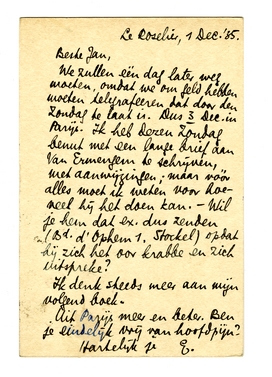 Le Roselier, 1 Dec. '35.
Beste Jan,
We zullen één dag later weg
moeten, omdat we om geld hebben
moeten telegrafeeren dat door den
Zondag te laat is. Dus 3 Dec. in
Parijs. Ik heb dezen Zondag
benut met een lange brief aan
Van Ermengem te schrijven,
met aanwijzingen; maar vóór
alles moet ik weten voor hoe-
veel hij het doen kan. — Wil
je hem dat ex. dus zenden
(Bd. d'Ophem 1, Stockel) opdat
hij zich het oor krabbe en zich
uitspreke?
Ik denk steeds meer aan mijn
volgend boek.
Uit Parijs meer en beter. Ben
je eindelijk vrij van hoofdpijn?
Hartelijk je E.